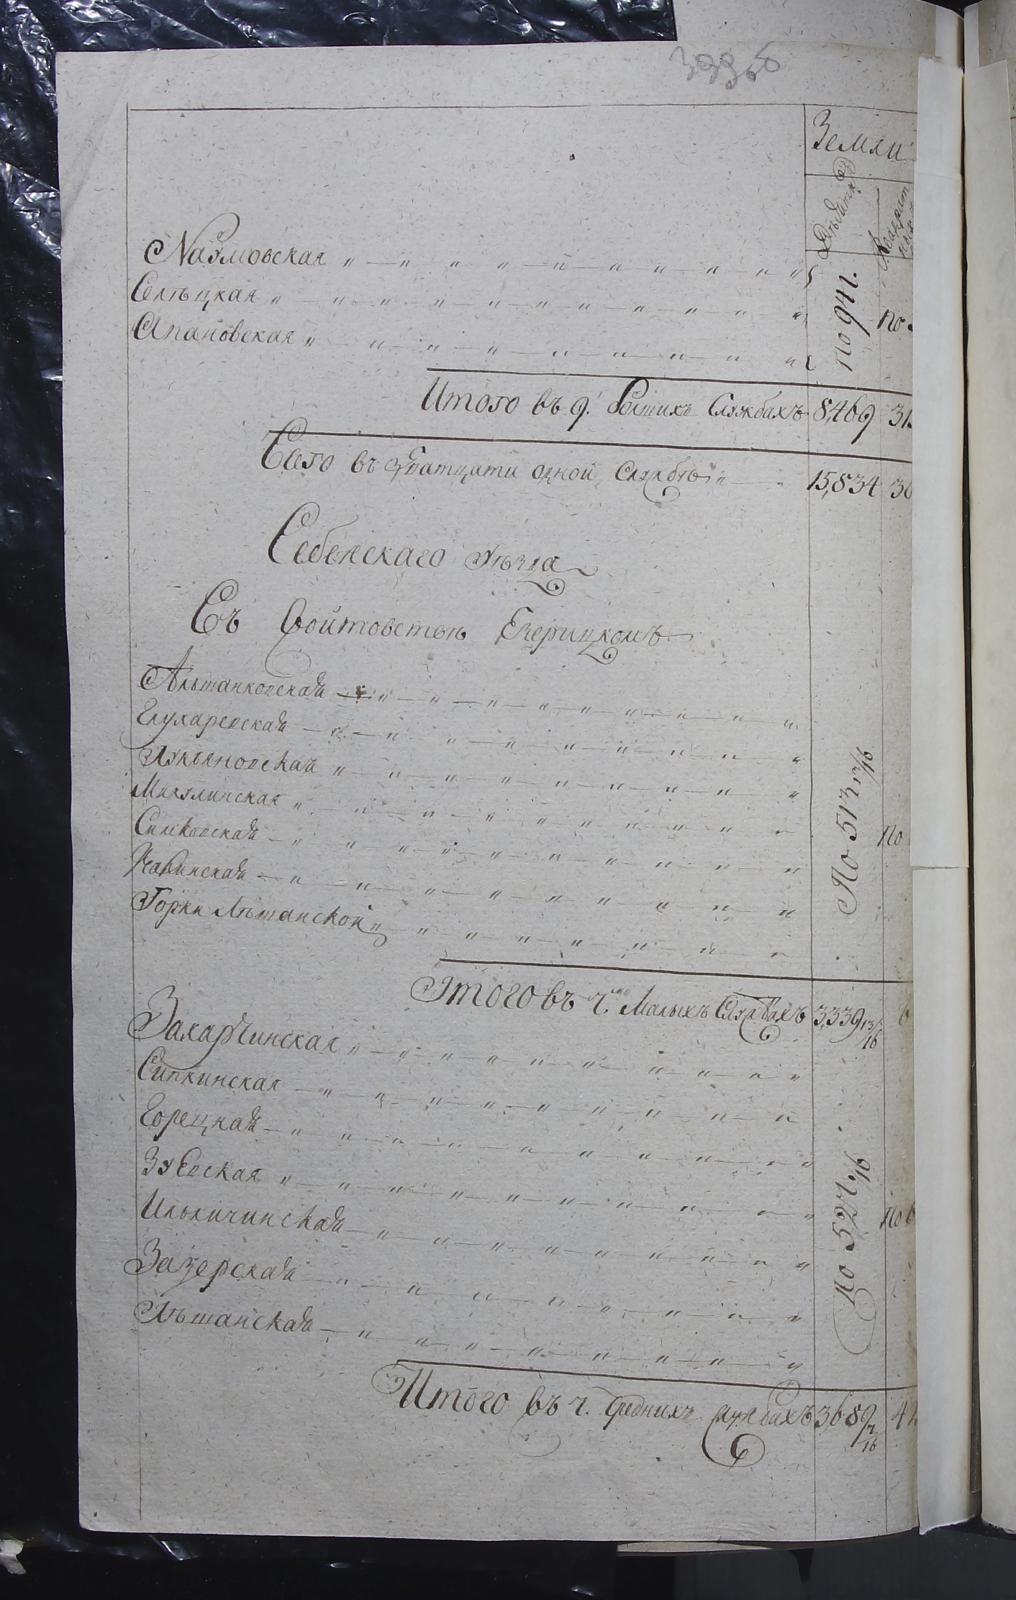 399 об
Земли
Десятинъ
по 941.
по
Наумовская
Селѣцкая
Апановская
Итого въ 9. Большихъ Службахъ 8,469 31
Всего въ дватцати одной Службѣ 15,834 30
Себежскаго уѣзда
Въ Войтовствѣ Езерицкомъ
Альтанковская
Глухаревская
Лукьяновская
Микулинская
Симковская
Горки Лѣтанской
По 513 13/16
по
Итого въ 7. Малыхъ Службахъ 3,339 13/16 6
Захарчинская
Сипкинская
Горецкая
Зуевская
Ильличинская
Зазерская
Лѣтанская
по 527 1/16
по 6
Итого въ 7. Среднихъ службахъ 3689 7/16 4